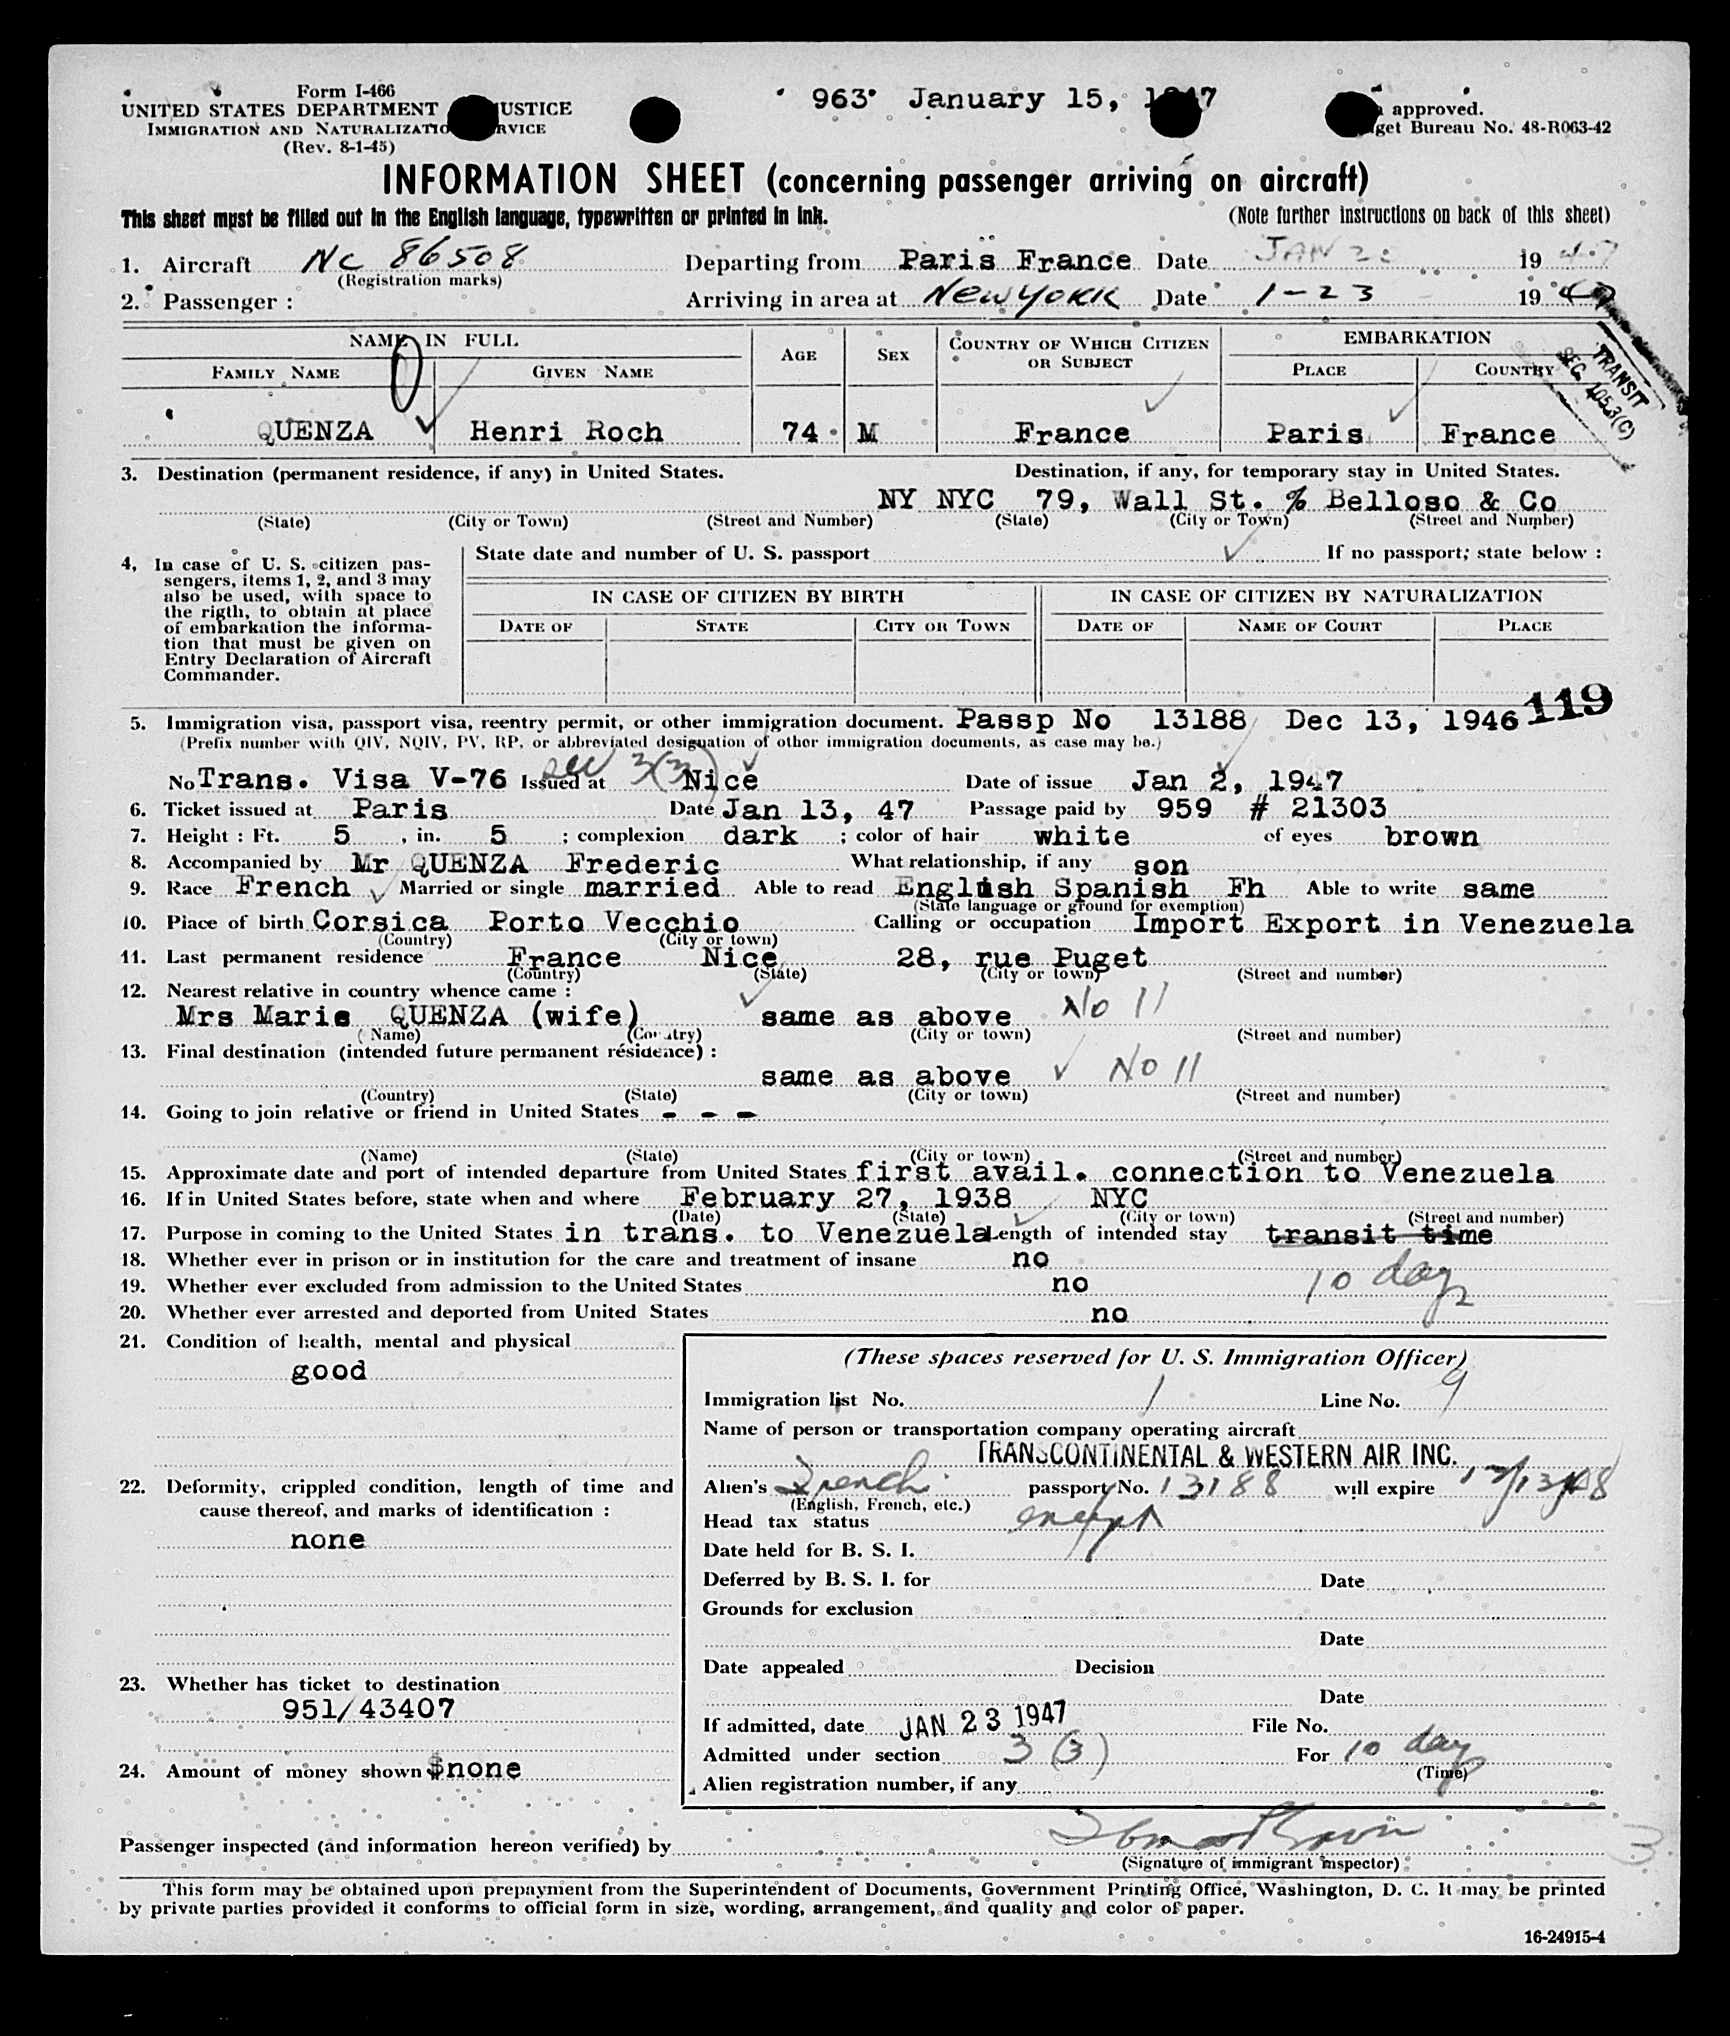 Form I-466
UNITED STATES DEPARTMENT USTICE
IMMIGRATION AND NATURALIZATIO RVICE
(Rev. 8-1-45)
963 January 15, 1947
approved.
get Bureau No. 48-R063-42
INFORMATION SHEET (concerning passenger arriving on aircraft)
This sheet must be filled out in the English language, typewritten or printed in ink. (Note further instructions on back of this sheet)
1. Aircraft NC 86508 Departing from Paris France Date JAN 1947
(Registration marks)
2. Passenger : Arriving in area at New York Date 1-23 1947
TRANSIT
SEC. 1053(C)
NAME IN FULL AGE SEX COUNTRY OF WHICH CITIZEN OR SUBJECT EMBARKATION
FAMILY NAME GIVEN NAME PLACE COUNTRY
QUENZA Henri Roch 74 M France Paris France
3. Destination (permanent residence, if any) in United States. Destination, if any, for temporary stay in United States.
NY NYC 79, Wall St. % Belloso & Co
(State) (City or Town) (Street and Number) (State) (City or Town) (Street and Number)
4, In case of U. S. citizen pas-
sengers, items 1, 2, and 3 may
also be used, with space to
the rigth, to obtain at place
of embarkation the informa-
tion that must be given on
Entry Declaration of Aircraft
Commander.
State date and number of U. S. passport If no passport; state below :
IN CASE OF CITIZEN BY BIRTH IN CASE OF CITIZEN BY NATURALIZATION
DATE OF STATE CITY OR TOWN DATE OF NAME OF COURT PLACE
119
5. Immigration visa, passport visa, reentry permit, or other immigration document. Passp No 13188 Dec 13, 1946
(Prefix number with QIV, NQIV, PV, RP, or abbreviated designation of other immigration documents, as case may be.)
sec 3(3)
No Trans. Visa V-76 Issued at Nice Date of issue Jan 2, 1947
6. Ticket issued at Paris Date Jan 13, 47 Passage paid by 959 # 21303
7. Height : Ft. 5 , in. 5 ; complexion dark ; color of hair white of eyes brown
8. Accompanied by Mr QUENZA Frederic What relationship, if any son
9. Race French Married or single married Able to read English Spanish Fh Able to write same
(State language or ground for exemption)
10. Place of birth Corsica Porto Vecchio Calling or occupation Import Export in Venezuela
(Country) (City or town)
11. Last permanent residence France Nice 28, rue Puget
(Country) (State) (City or town) (Street and number)
12. Nearest relative in country whence came :
Mrs Marie QUENZA (wife) same as above No 11
(Name) (Country) (City or town) (Street and number)
13. Final destination (intended future permanent résidence) :
same as above No 11
(Country) (State) (City or town) (Street and number)
14. Going to join relative or friend in United States - - -
(Name) (State) (City or town) (Street and number)
15. Approximate date and port of intended departure from United States first avail. connection to Venezuela
16. If in United States before, state when and where February 27, 1938 NYC
(Date) (State) (City or town) (Street and number)
17. Purpose in coming to the United States in trans. to Venezuela Length of intended stay transit time
10 days
18. Whether ever in prison or in institution for the care and treatment of insane no
19. Whether ever excluded from admission to the United States no
20. Whether ever arrested and deported from United States no
21. Condition of health, mental and physical
good
22. Deformity, crippled condition, length of time and
cause thereof, and marks of identification :
none
23. Whether has ticket to destination
951/43407
24. Amount of money shown $none
(These spaces reserved for U. S. Immigration Officer)
Immigration list No. 1 Line No. 9
Name of person or transportation company operating aircraft
TRANSCONTINENTAL & WESTERN AIR INC.
Alien's French passport No. 13188 will expire 12/13/48
(English, French, etc.)
Head tax status exempt
Date held for B. S. I.
Deferred by B. S. I. for Date
Grounds for exclusion
Date
Date appealed Decision
Date
If admitted, date JAN 23 1947 File No.
Admitted under section 3 (3) For 10 days
(Time)
Alien registration number, if any
Passenger inspected (and information hereon verified) by
3
(Signature of immigrant inspector)
This form may be obtained upon prepayment from the Superintendent of Documents, Government Printing Office, Washington, D. C. It may be printed
by private parties provided it conforms to official form in size, wording, arrangement, and quality and color of paper.
16-24915-4